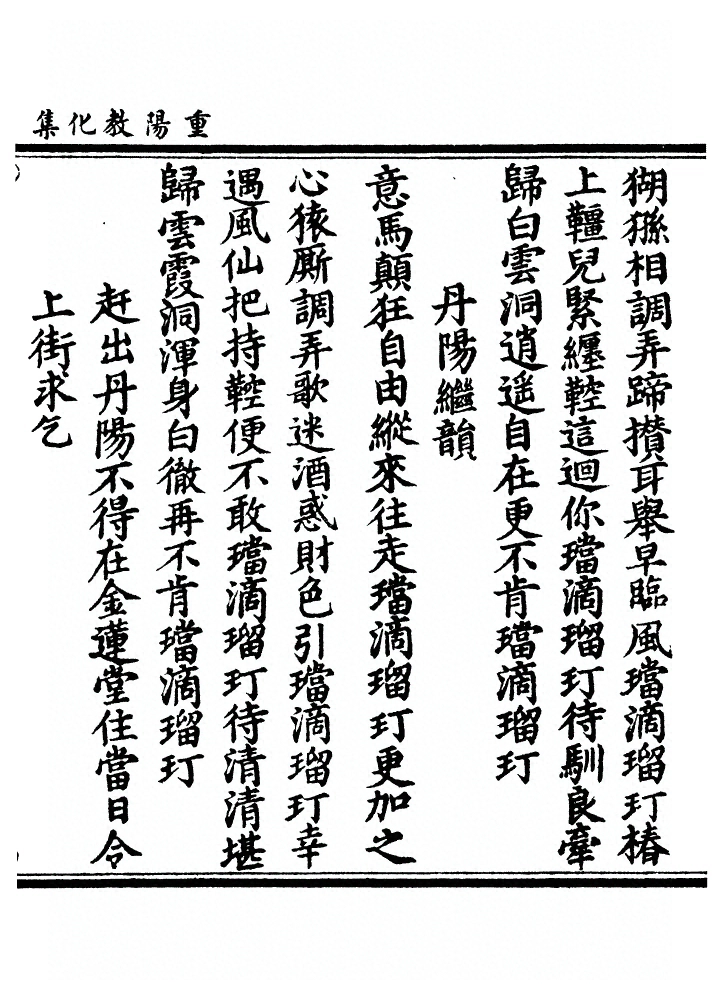 重陽教化集
猢猻相調弄蹄攢耳舉早臨風璫滴瑠玎椿
上韁兒緊纏鞚這迴你璫滴瑠玎待馴良牽
歸白雲洞逍遥自在更不肯璫滴瑠玎
丹陽繼韻
意馬顛狂自由縱來往走璫滴瑠玎更加之
心猿厮調弄歌迷酒惑財色引璫滴瑠玎幸
遇風仙把持鞚便不敢璫滴瑠玎待清清堪
歸雲霞洞渾身白徹再不肯璫滴瑠玎
赶出丹陽不得在金蓮堂住當日令
上街求乞